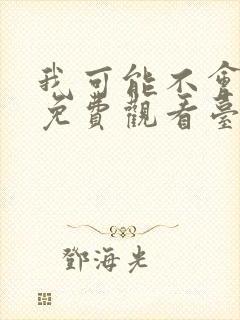 我可能不會
免費觀看臺
鄧海光